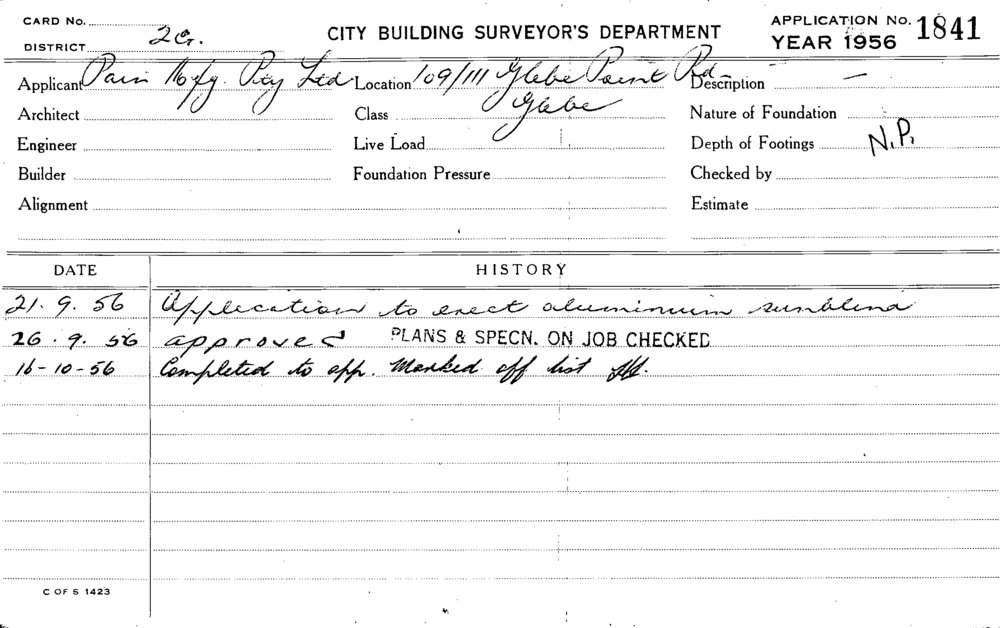 CARD No.
DISTRICT 2G.
CITY BUILDING SURVEYOR'S DEPARTMENT
APPLICATION No. 1841
YEAR 1956
Applicant Pain Mfg. Pty Ltd Location 109/111 Glebe Point Rd Description —
Architect Class Glebe Nature of Foundation
Engineer Live Load Depth of Footings N.P.
Builder Foundation Pressure Checked by
Alignment Estimate
DATE HISTORY
21. 9. 56 Application to erect aluminium sunblind
26. 9. 56 approved PLANS & SPECN. ON JOB CHECKED
16-10-56 Completed to app. Marked off list
C OF S 1423